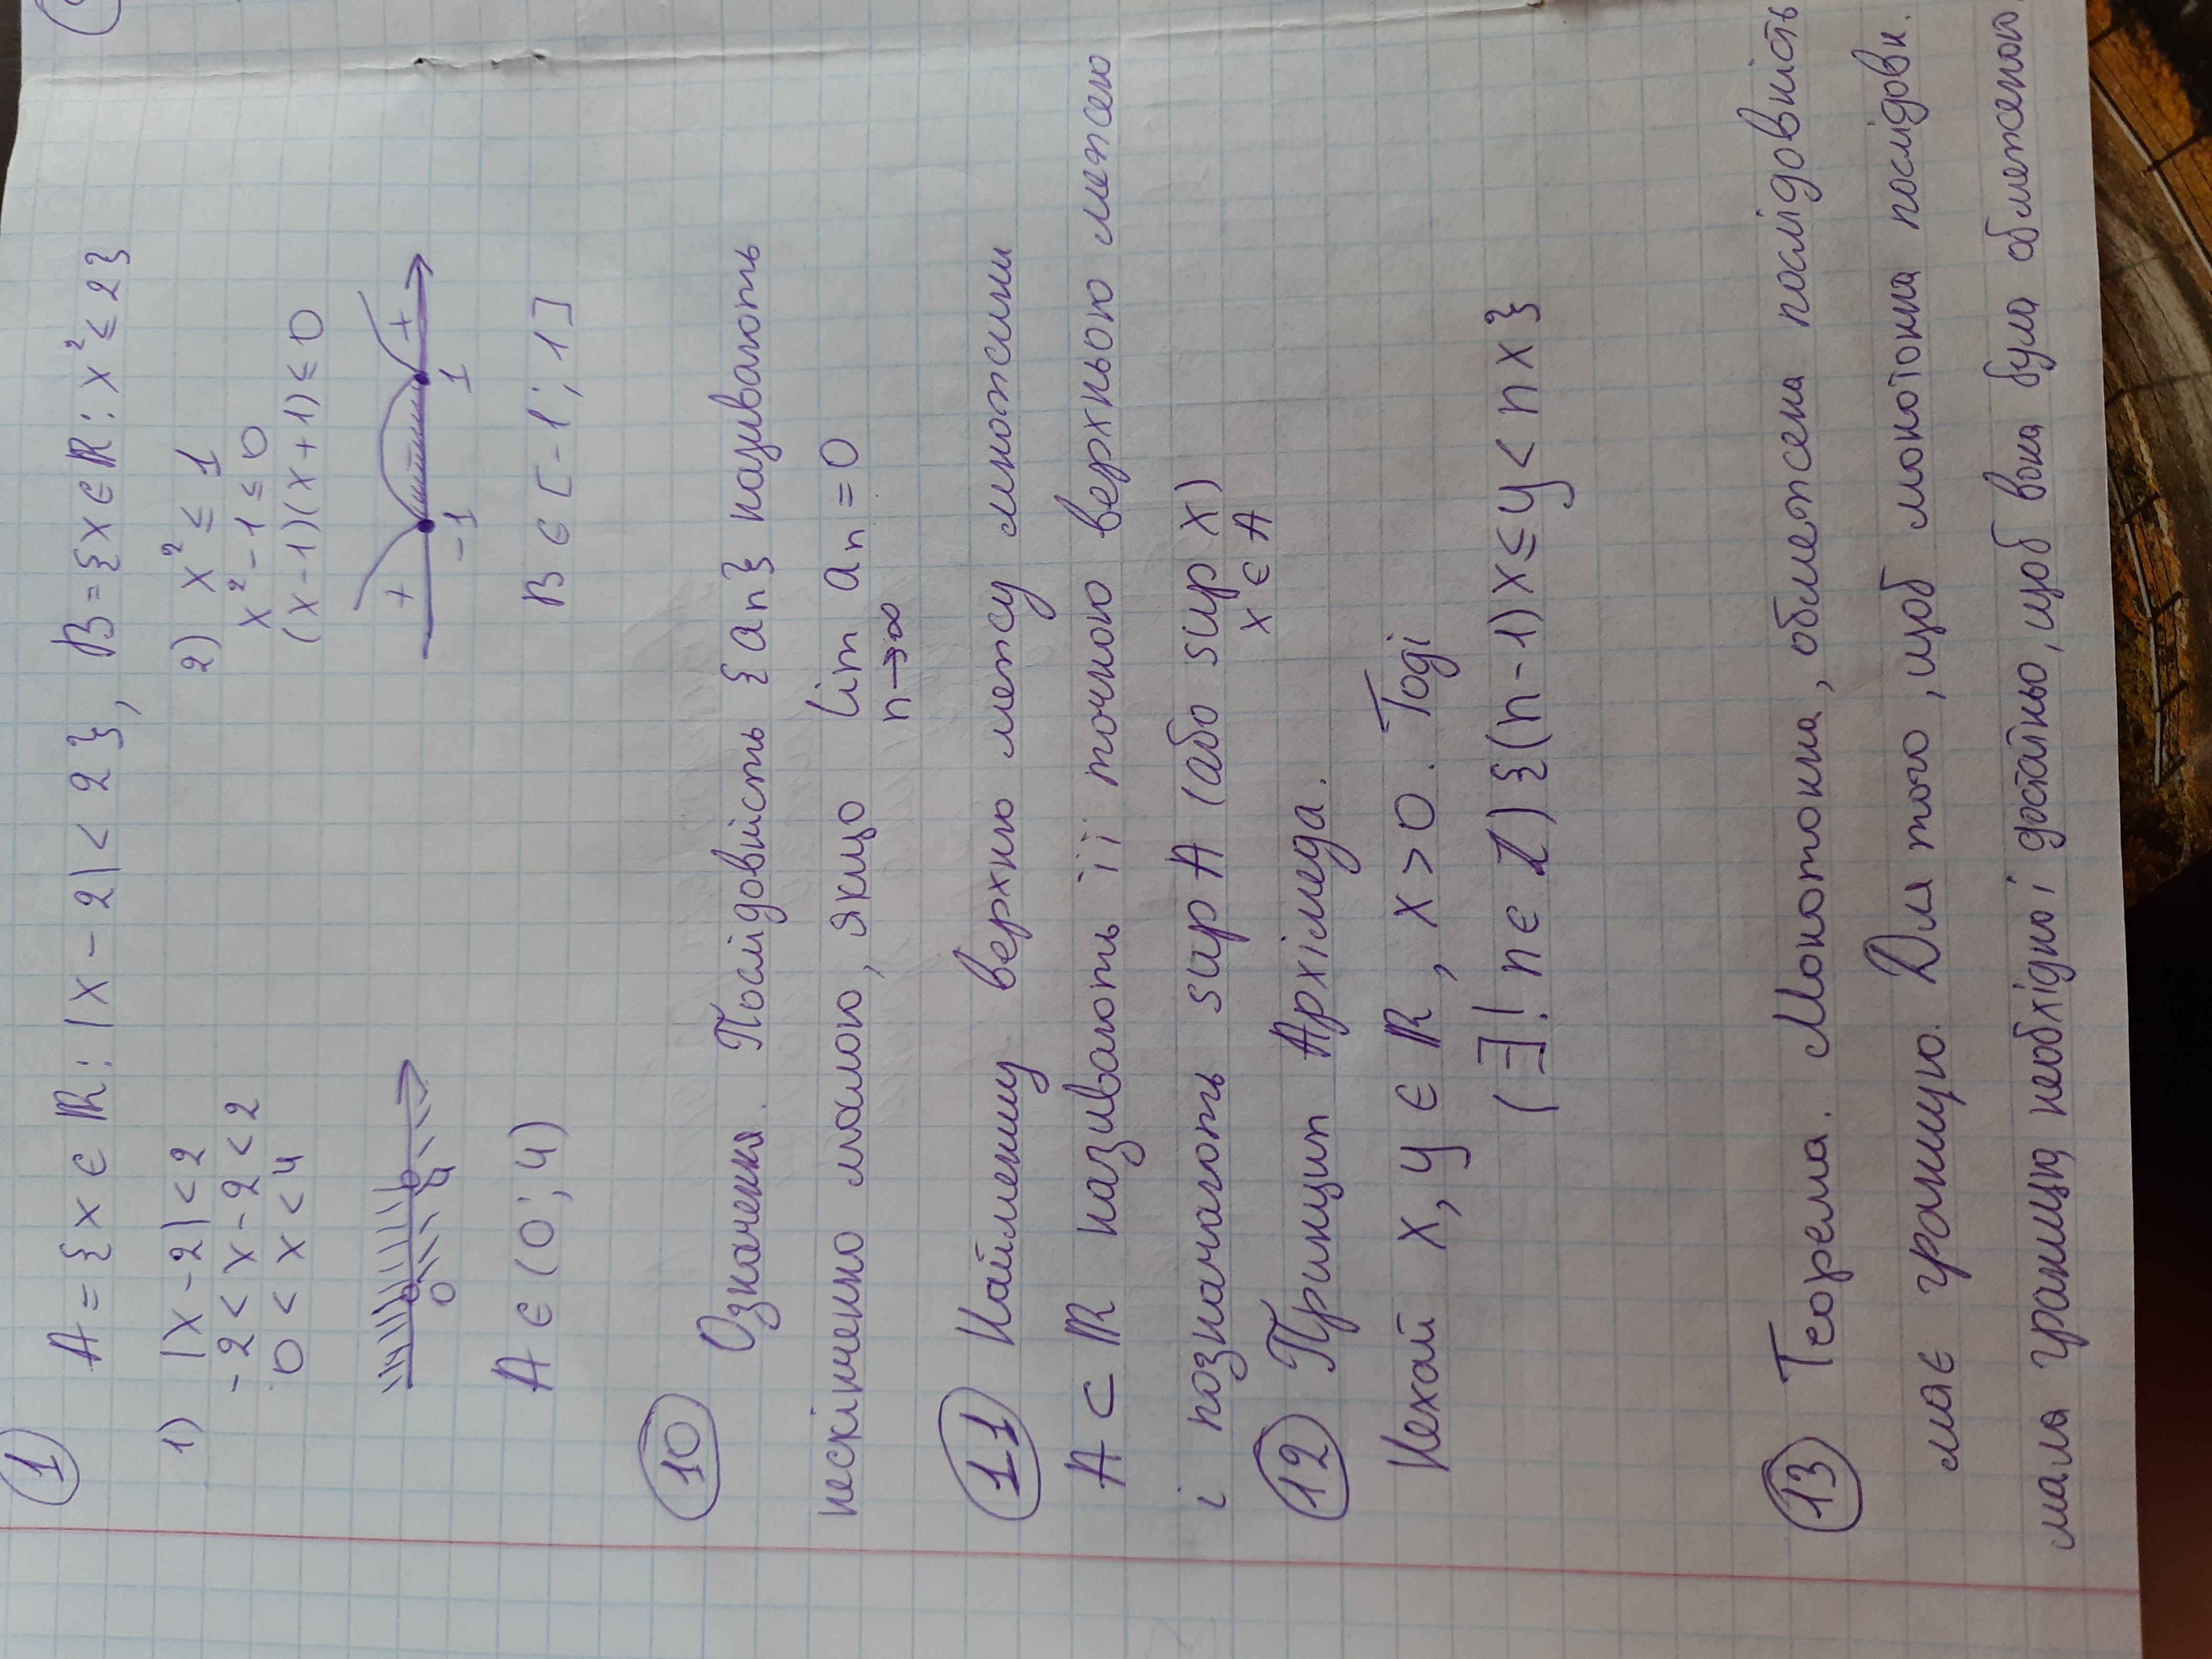 1
A = {x ∈ ℝ : |x - 2| < 2}, B = {x ∈ ℝ : x² ≤ 2}
1) |x - 2| < 2
-2 < x - 2 < 2
0 < x < 4
0 4
A ∈ (0; 4)
2) x² ≤ 1
x² - 1 ≤ 0
(x - 1)(x + 1) ≤ 0
+ - +
-1 1
B ∈ [-1; 1]
10
Означення. Послідовність {aₙ} називають
нескінченно малою, якщо lim aₙ = 0
n→∞
11 Найменшу верхню межу множини
A ⊂ ℝ називають її точною верхньою межею
і позначають sup A (або sup x)
x ∈ A
12 Принцип Архімеда.
Нехай x, y ∈ ℝ, x > 0. Тоді
(∃! n ∈ ℤ) {(n - 1)x ≤ y < nx}
13 Теорема. Монотонна, обмежена послідовність
має границю. Для того, щоб монотонна послідовн.
мала границю, необхідно і достатньо, щоб вона була обмеженою